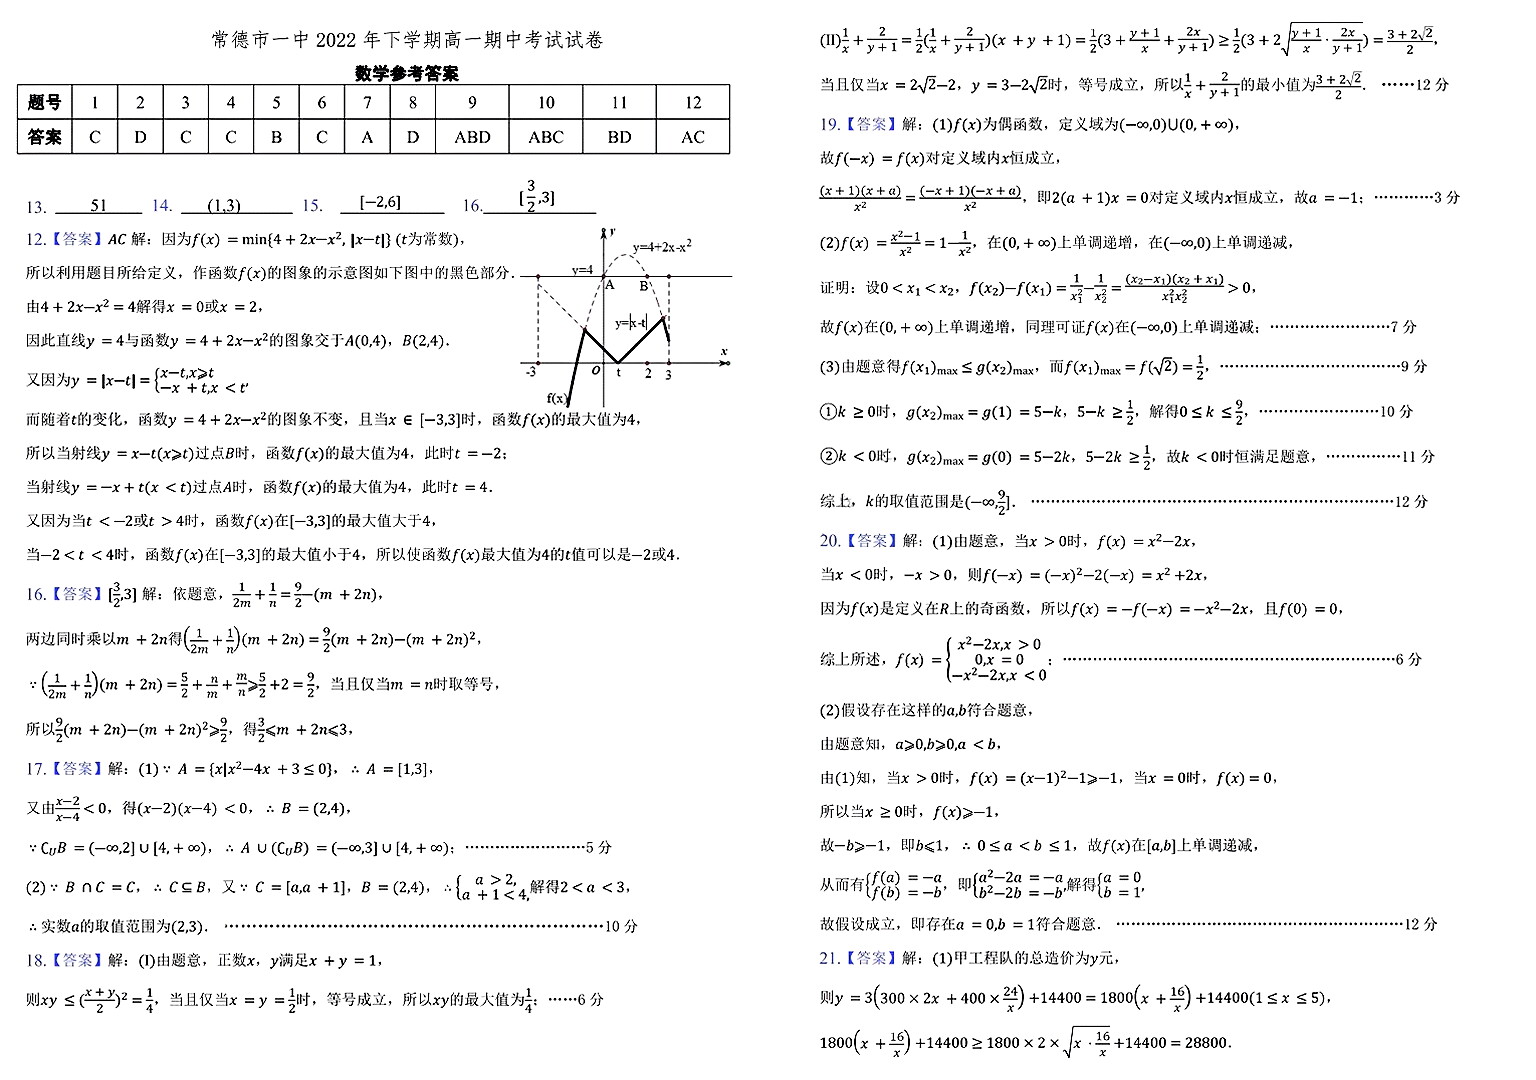 常德市一中 2022 年下学期高一期中考试试卷
数学参考答案
题号 1 2 3 4 5 6 7 8 9 10 11 12
答案 C D C C B C A D ABD ABC BD AC
13. 51 14. (1,3) 15. [−2,6] 16. [3/2,3]
12.【答案】AC 解：因为f(x) = min{4 + 2x−x², |x−t|} (t为常数)，
所以利用题目所给定义，作函数f(x)的图象的示意图如下图中的黑色部分．
由4 + 2x−x² = 4解得x = 0或x = 2，
因此直线y = 4与函数y = 4 + 2x−x²的图象交于A(0,4)，B(2,4)．
又因为y = |x−t| = {x−t,x⩾t
−x + t,x < t，
y
y=4+2x-x²
y=4
A B
y=|x-t|
x
-3 O t 2 3
f(x)
而随着t的变化，函数y = 4 + 2x−x²的图象不变，且当x ∈ [−3,3]时，函数f(x)的最大值为4，
所以当射线y = x−t(x⩾t)过点B时，函数f(x)的最大值为4，此时t = −2；
当射线y = −x + t(x < t)过点A时，函数f(x)的最大值为4，此时t = 4．
又因为当t < −2或t > 4时，函数f(x)在[−3,3]的最大值大于4，
当−2 < t < 4时，函数f(x)在[−3,3]的最大值小于4，所以使函数f(x)最大值为4的t值可以是−2或4．
16.【答案】[3/2,3] 解：依题意，1/2m + 1/n = 9/2−(m + 2n)，
两边同时乘以m + 2n得(1/2m + 1/n)(m + 2n) = 9/2(m + 2n)−(m + 2n)²，
∵ (1/2m + 1/n)(m + 2n) = 5/2 + n/m + m/n⩾5/2 +2 = 9/2，当且仅当m = n时取等号，
所以9/2(m + 2n)−(m + 2n)²⩾9/2，得3/2⩽m + 2n⩽3，
17.【答案】解：(1)∵ A = {x|x²−4x + 3 ≤ 0}，∴ A = [1,3]，
又由x−2/x−4 < 0，得(x−2)(x−4) < 0，∴ B = (2,4)，
∵ ∁UB = (−∞,2] ∪ [4, + ∞)，∴ A ∪ (∁UB) = (−∞,3] ∪ [4, + ∞)；……………………5 分
(2)∵ B ∩ C = C，∴ C ⊆ B，又∵ C = [a,a + 1]，B = (2,4)，∴{a > 2,
a + 1 < 4,解得2 < a < 3，
∴实数a的取值范围为(2,3)．…………………………………………………………10 分
18.【答案】解：(Ⅰ)由题意，正数x，y满足x + y = 1，
则xy ≤ (x + y/2)² = 1/4，当且仅当x = y = 1/2时，等号成立，所以xy的最大值为1/4；……6 分
(Ⅱ)1/x + 2/y+1 = 1/2(1/x + 2/y+1)(x + y + 1) = 1/2(3 + y+1/x + 2x/y+1) ≥ 1/2(3 + 2√(y+1/x · 2x/y+1)) = 3 + 2√2/2，
当且仅当x = 2√2−2，y = 3−2√2时，等号成立，所以1/x + 2/y+1的最小值为3 + 2√2/2．……12 分
19.【答案】解：(1)f(x)为偶函数，定义域为(−∞,0)∪(0, + ∞)，
故f(−x) = f(x)对定义域内x恒成立，
(x + 1)(x + a)/x² = (−x + 1)(−x + a)/x²，即2(a + 1)x = 0对定义域内x恒成立，故a = −1；…………3 分
(2)f(x) = x²−1/x² = 1−1/x²，在(0, + ∞)上单调递增，在(−∞,0)上单调递减，
证明：设0 < x₁ < x₂，f(x₂)−f(x₁) = 1/x₁²−1/x₂² = (x₂−x₁)(x₂ + x₁)/x₁²x₂² > 0，
故f(x)在(0, + ∞)上单调递增，同理可证f(x)在(−∞,0)上单调递减；……………………7 分
(3)由题意得f(x₁)max ≤ g(x₂)max，而f(x₁)max = f(√2) = 1/2，……………………………9 分
①k ≥ 0时，g(x₂)max = g(1) = 5−k，5−k ≥ 1/2，解得0 ≤ k ≤ 9/2，……………………10 分
②k < 0时，g(x₂)max = g(0) = 5−2k，5−2k ≥ 1/2，故k < 0时恒满足题意，……………11 分
综上，k的取值范围是(−∞,9/2]．…………………………………………………………12 分
20.【答案】解：(1)由题意，当x > 0时，f(x) = x²−2x，
当x < 0时，−x > 0，则f(−x) = (−x)²−2(−x) = x² +2x，
因为f(x)是定义在R上的奇函数，所以f(x) = −f(−x) = −x²−2x，且f(0) = 0，
综上所述，f(x) = {x²−2x,x > 0
0,x = 0
−x²−2x,x < 0；……………………………………………………6 分
(2)假设存在这样的a,b符合题意，
由题意知，a⩾0,b⩾0,a < b，
由(1)知，当x > 0时，f(x) = (x−1)²−1⩾−1，当x = 0时，f(x) = 0，
所以当x ≥ 0时，f(x)⩾−1，
故−b⩾−1，即b⩽1，∴ 0 ≤ a < b ≤ 1，故f(x)在[a,b]上单调递减，
从而有{f(a) = −a
f(b) = −b，即{a²−2a = −a
b²−2b = −b，解得{a = 0
b = 1，
故假设成立，即存在a = 0,b = 1符合题意．……………………………………………12 分
21.【答案】解：(1)甲工程队的总造价为y元，
则y = 3(300 × 2x + 400 × 24/x) +14400 = 1800(x + 16/x) +14400(1 ≤ x ≤ 5)，
1800(x + 16/x) +14400 ≥ 1800 × 2 × √(x · 16/x) +14400 = 28800．